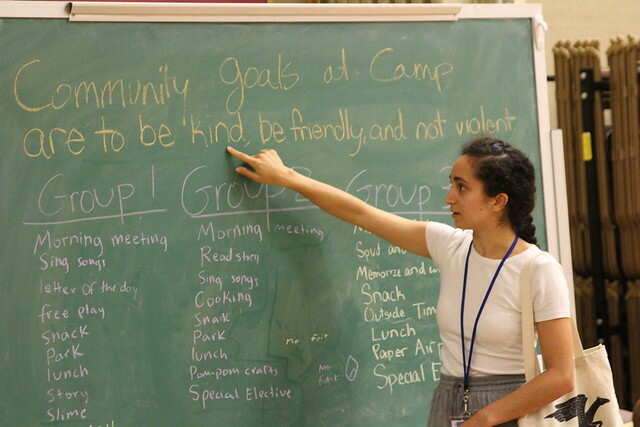 Community goals at Camp
are to be kind, be friendly, and not violent
Group 1
Morning meeting
Sing songs
letter of the day
free play
snack
Park
lunch
Story
slime
Group 2
Morning meeting
Read story
Sing songs
Cooking
Snack
Park
lunch
Pom-pom crafts
Special Elective
No Edit
No
Edit
Group
Spud and
Memorize and
Snack
Outside Time
Lunch
Paper Air
Special E